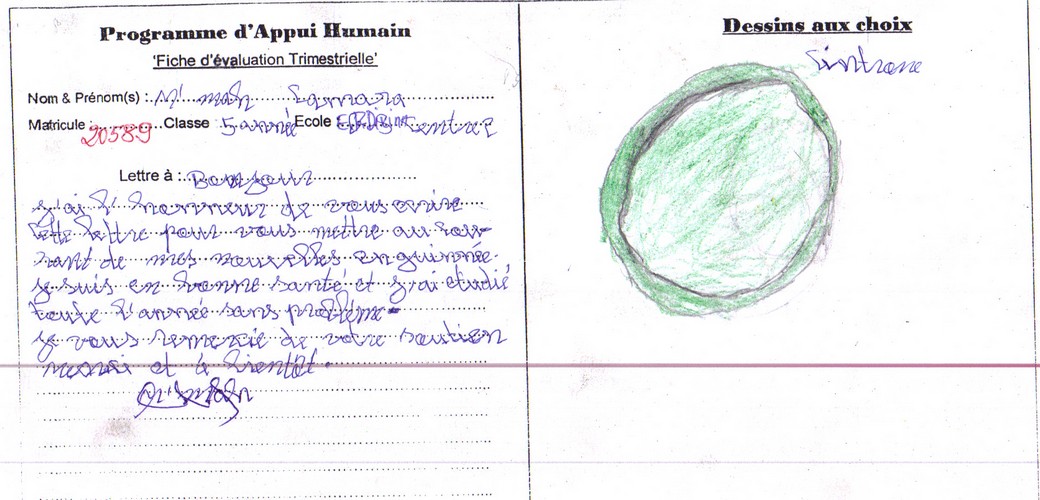 Programme d'Appui Humain
'Fiche d'évaluation Trimestrielle'
Nom & Prénom(s) : M'mah Camara
Matricule : 20589 Classe : 5 année Ecole : Centre
Lettre à : Bonjour
j'ai l'honneur de vous ecrire
cette lettre pour vous mettre au cour-
rant de mes nouvelles en guinnée.
je suis en bonne santé et j'ai etudié
toute l'année sans problème-
je vous remercie de votre soutien
et à bientôt.
M'mah
Dessins aux choix
Sintrone